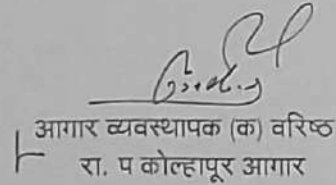 आगार व्यवस्थापक (क) वरिष्ठ
रा. प कोल्हापूर आगार